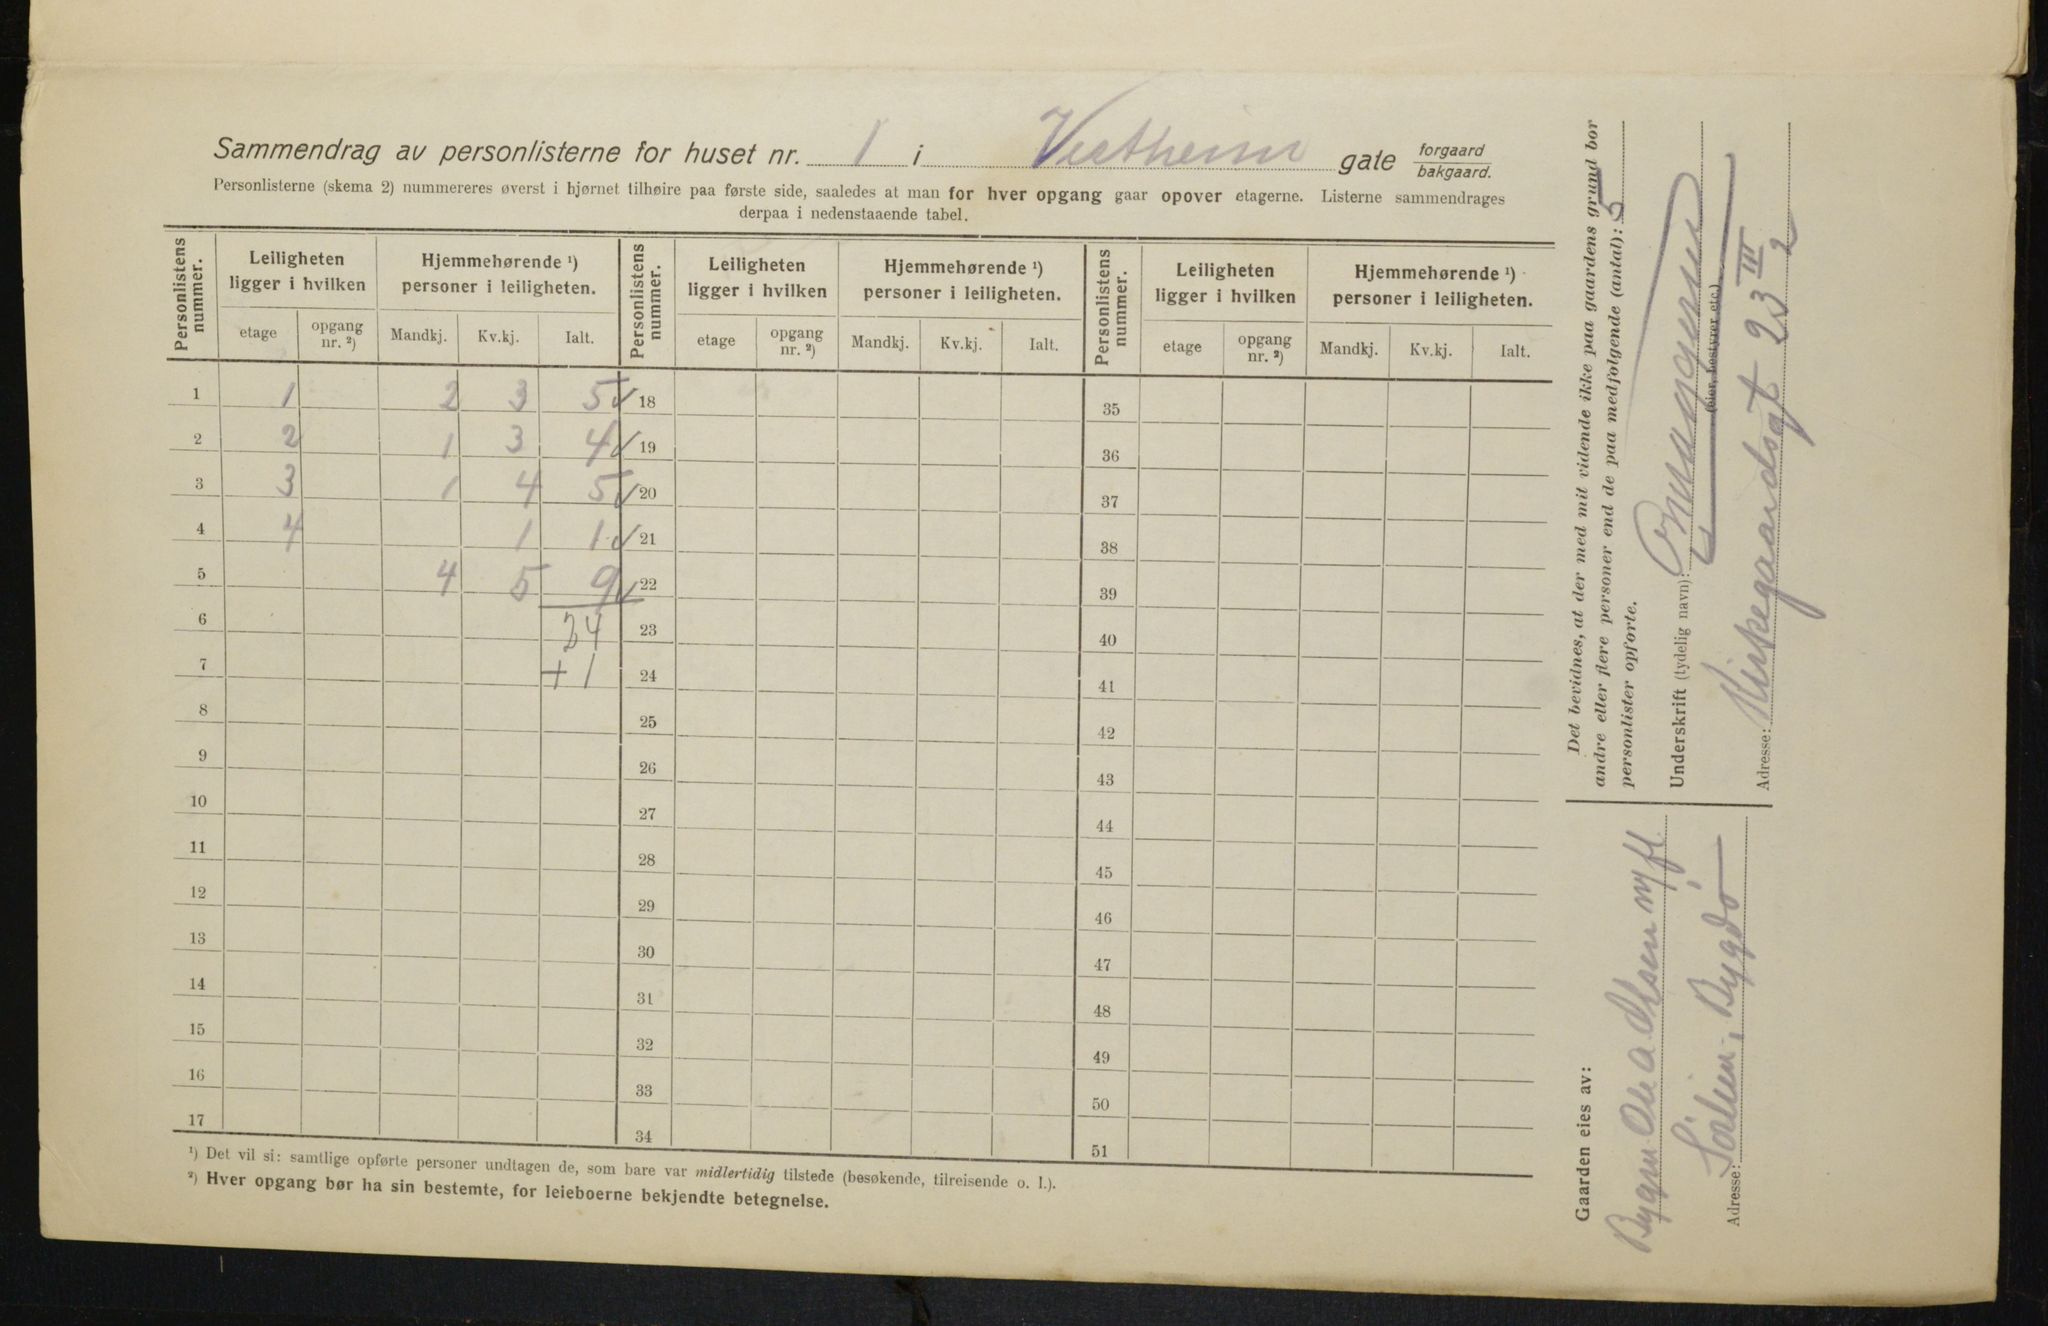 Sammendrag av personlisterne for huset nr. 1 i Vestheim gate forgaard bakgaard.
Personlisterne (skema 2) nummereres øverst i hjørnet tilhøire paa første side, saaledes at man for hver opgang gaar opover etagerne. Listerne sammendrages
derpaa i nedenstaaende tabel.
Personlistens nummer. Leiligheten ligger i hvilken Hjemmehørende ¹) personer i leiligheten. Personlistens nummer. Leiligheten ligger i hvilken Hjemmehørende ¹) personer i leiligheten. Personlistens nummer. Leiligheten ligger i hvilken Hjemmehørende ¹) personer i leiligheten.
etage opgang nr. ²) Mandkj. Kv.kj. Ialt. etage opgang nr. ²) Mandkj. Kv.kj. Ialt. etage opgang nr. ²) Mandkj. Kv.kj. Ialt.
1 1 2 3 5 18 35
2 2 1 3 4 19 36
3 3 1 4 5 20 37
4 4 1 1 21 38
5 4 5 9 22 39
6 24 23 40
7 + 1 24 41
8 25 42
9 26 43
10 27 44
11 28 45
12 29 46
13 30 47
14 31 48
15 32 49
16 33 50
17 34 51
¹) Det vil si: samtlige opførte personer undtagen de, som bare var midlertidig tilstede (besøkende, tilreisende o. l.).
²) Hver opgang bør ha sin bestemte, for leieboerne bekjendte betegnelse.
Gaarden eies av:
Olsen
Adresse: Bygdø
Det bevidnes, at der med mit vidende ikke paa gaardens grund bor
andre eller flere personer end de paa medfølgende (antal): 5
personlister opførte.
Underskrift (tydelig navn):
(eier, bestyrer etc.)
Adresse: Kirkegaardsgt 23 III
2